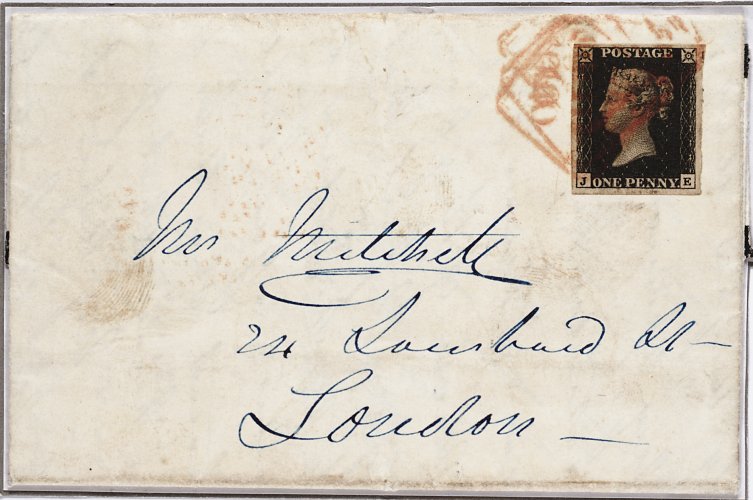 POSTAGE
J ONE PENNY E
Mr Mitchell
24 Lombard St
London